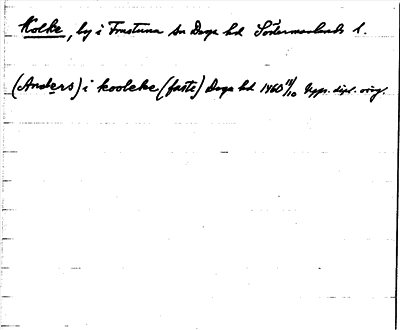 Kolke, by i Frustuna sn Daga hd Södermanlands l.
(Anders) i kooleke (faste) Daga hd 1460 18/10 Upps. dipl. orig.